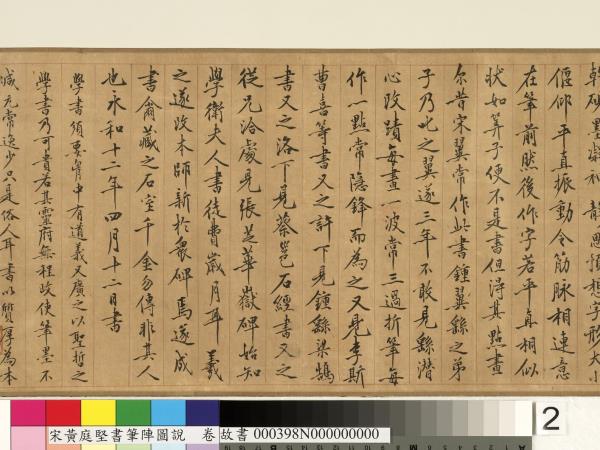 乾研墨凝神靜思預想字形大小
偃仰平直振動令筋脉相連意
在筆前然後作字若平直相似
狀如筭子便不是書但得其點畫
尓昔宋翼常作此書鍾翼繇之弟
子乃叱之翼遂三年不敢見繇潛
心改蹟每畫一波常三過折筆每
作一點常隱鋒而為之又見李斯
曹喜等書又之許下見鍾繇梁鵠
書又之洛下見蔡邕石經書又之
從兄洽處見張芝華嶽碑始知
學衛夫人書徒費歲月耳 羲
之遂改本師新於衆碑焉遂成
書翕藏之石室千金勿傳非其人
也永和十二年四月十二日書
學書須要胷中有道義又廣之以聖哲之
學書乃可貴若其靈府無程政使筆墨不
減元常逸少只是俗人耳書以質厚為本
宋黃庭堅書筆陣圖說 卷 故書 000398N000000000
2